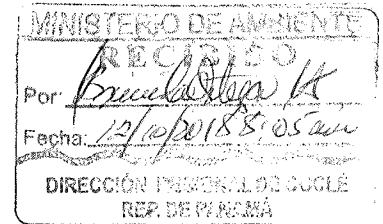 MINISTERIO DE AMBIENTE
RECIBIDO
Por:
Fecha: 12/10/2018 8:05 am
DIRECCIÓN REGIONAL DE COCLÉ
REP. DE PANAMÁ